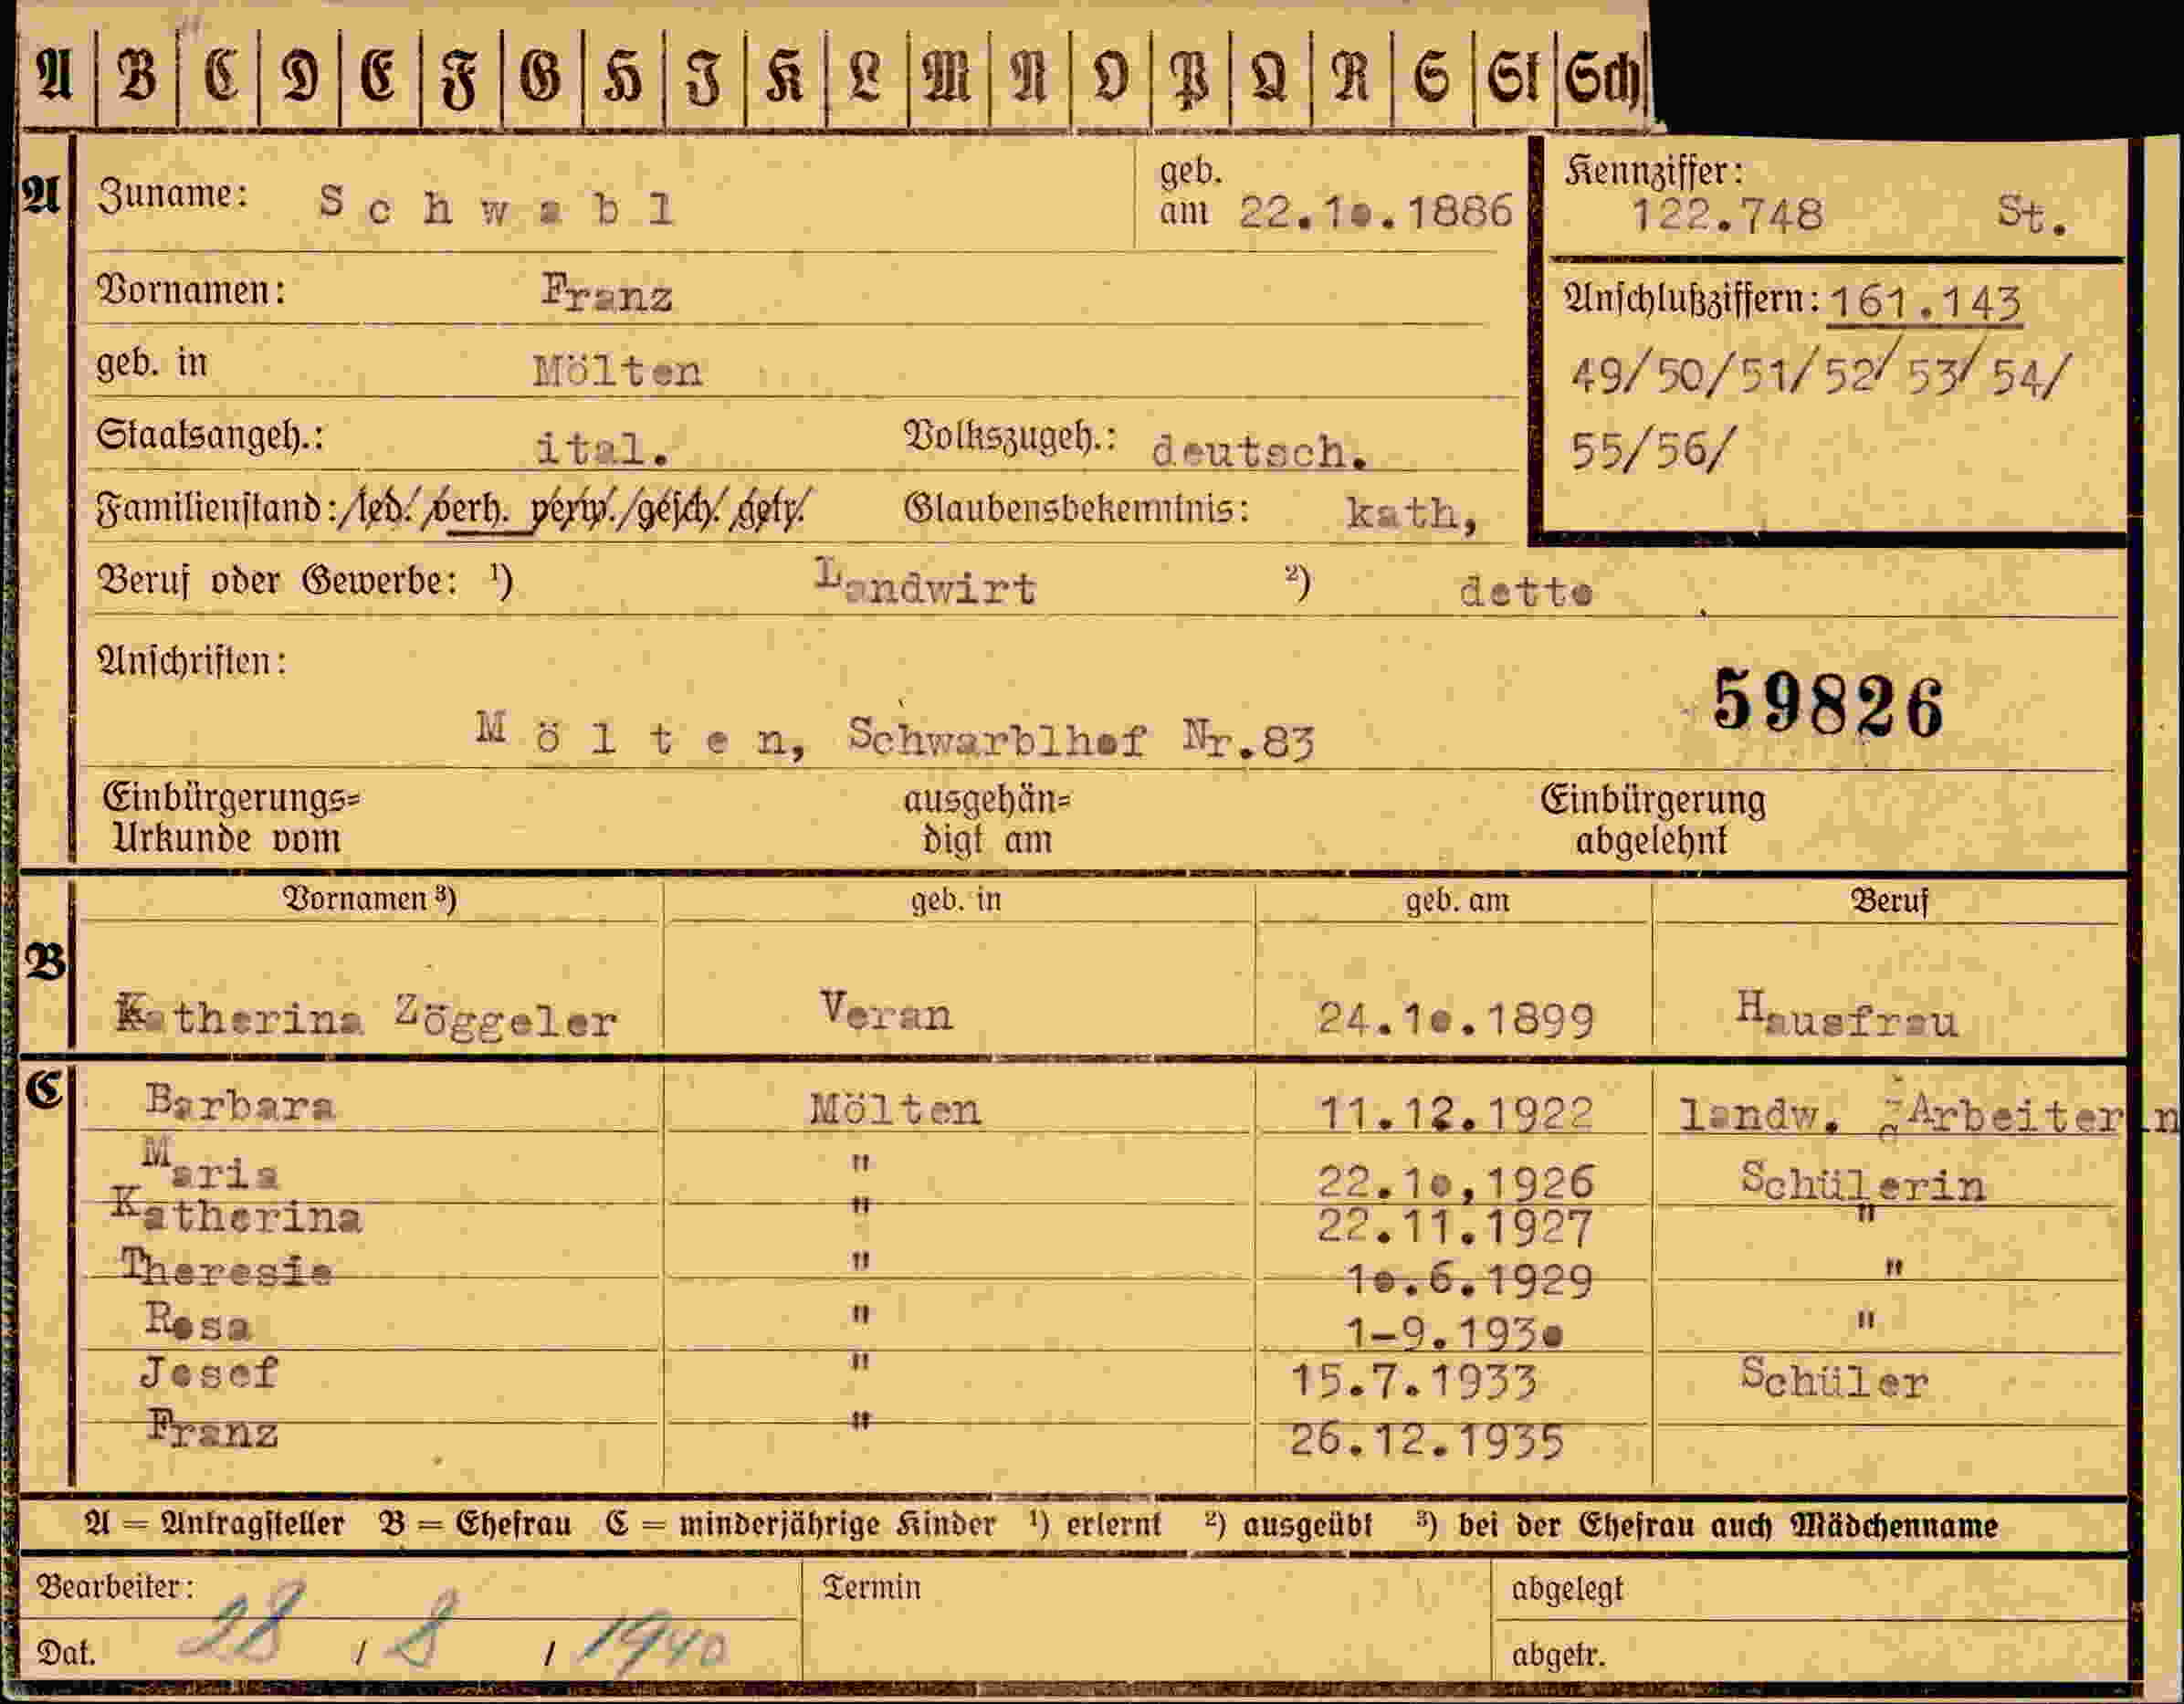 A B C D E F G H I K L M N O P Q R S St Sch
A Zuname: Schwabl geb. am 22.10.1886 Kennziffer: 122.748 St.
Vornamen: Franz Anschlußziffern: 161.143
geb. in Mölten 49/50/51/52/53/54/
Staatsangeh.: ital. Volkszugeh.: deutsch. 55/56/
Familienstand: led. verh. verw. gesch. getr. Glaubensbekenntnis: kath,
Beruf oder Gewerbe: ¹) Landwirt ²) detto
Anschriften: 59826
Mölten, Schwarblhof Nr.83
Einbürgerungs= ausgehän= Einbürgerung
Urkunde vom digt am abgelehnt
Vornamen ³) geb. in geb. am Beruf
B Katherina Zöggeler Veran 24.10.1899 Hausfrau
C Barbara Mölten 11.12.1922 landw. Arbeiterin
Maria " 22.10,1926 Schülerin
Katherina " 22.11.1927 "
Theresie " 10.6.1929 "
Rosa " 1-9.1930 "
Josef " 15.7.1933 Schüler
Franz " 26.12.1935
A = Antragsteller B = Ehefrau C = minderjährige Kinder ¹) erlernt ²) ausgeübt ³) bei der Ehefrau auch Mädchenname
Bearbeiter: Termin abgelegt
Dat. 28 / 8 / 1940 abgetr.